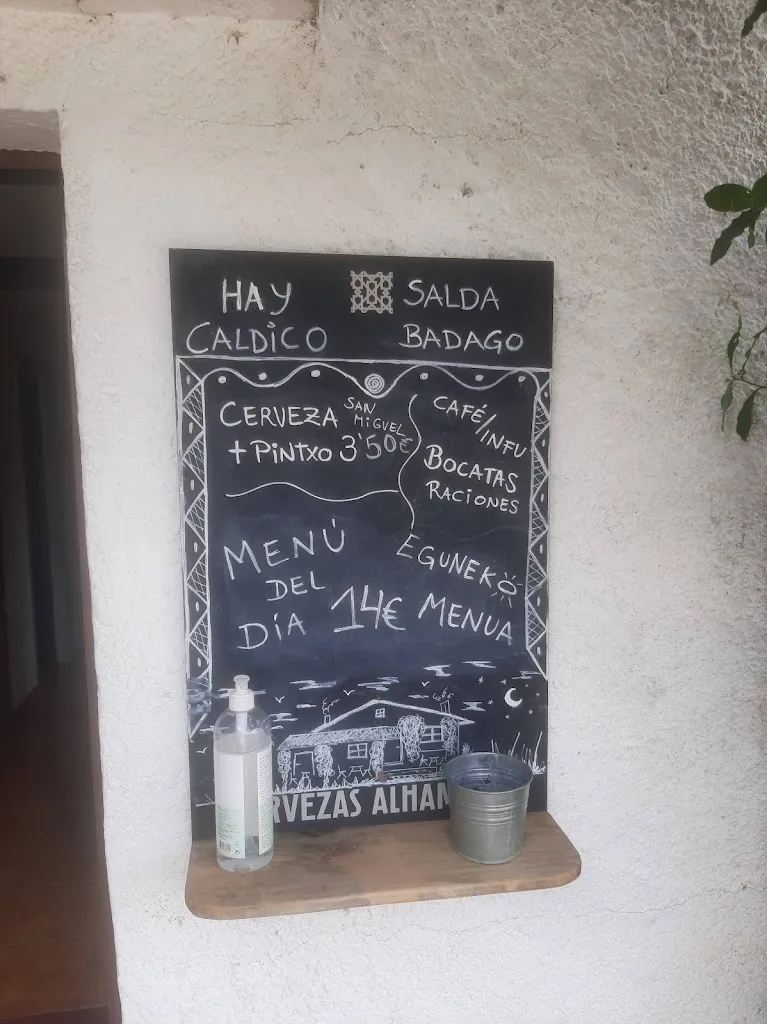 HAY
CALDICO
SALDA
BADAGO
CERVEZA SAN MIGUEL
+ PINTXO 3'50€
CAFÉ/INFU
BOCATAS
RACIONES
MENÚ
DEL
DÍA 14€
EGUNEKO
MENUA
RVEZAS ALHAM